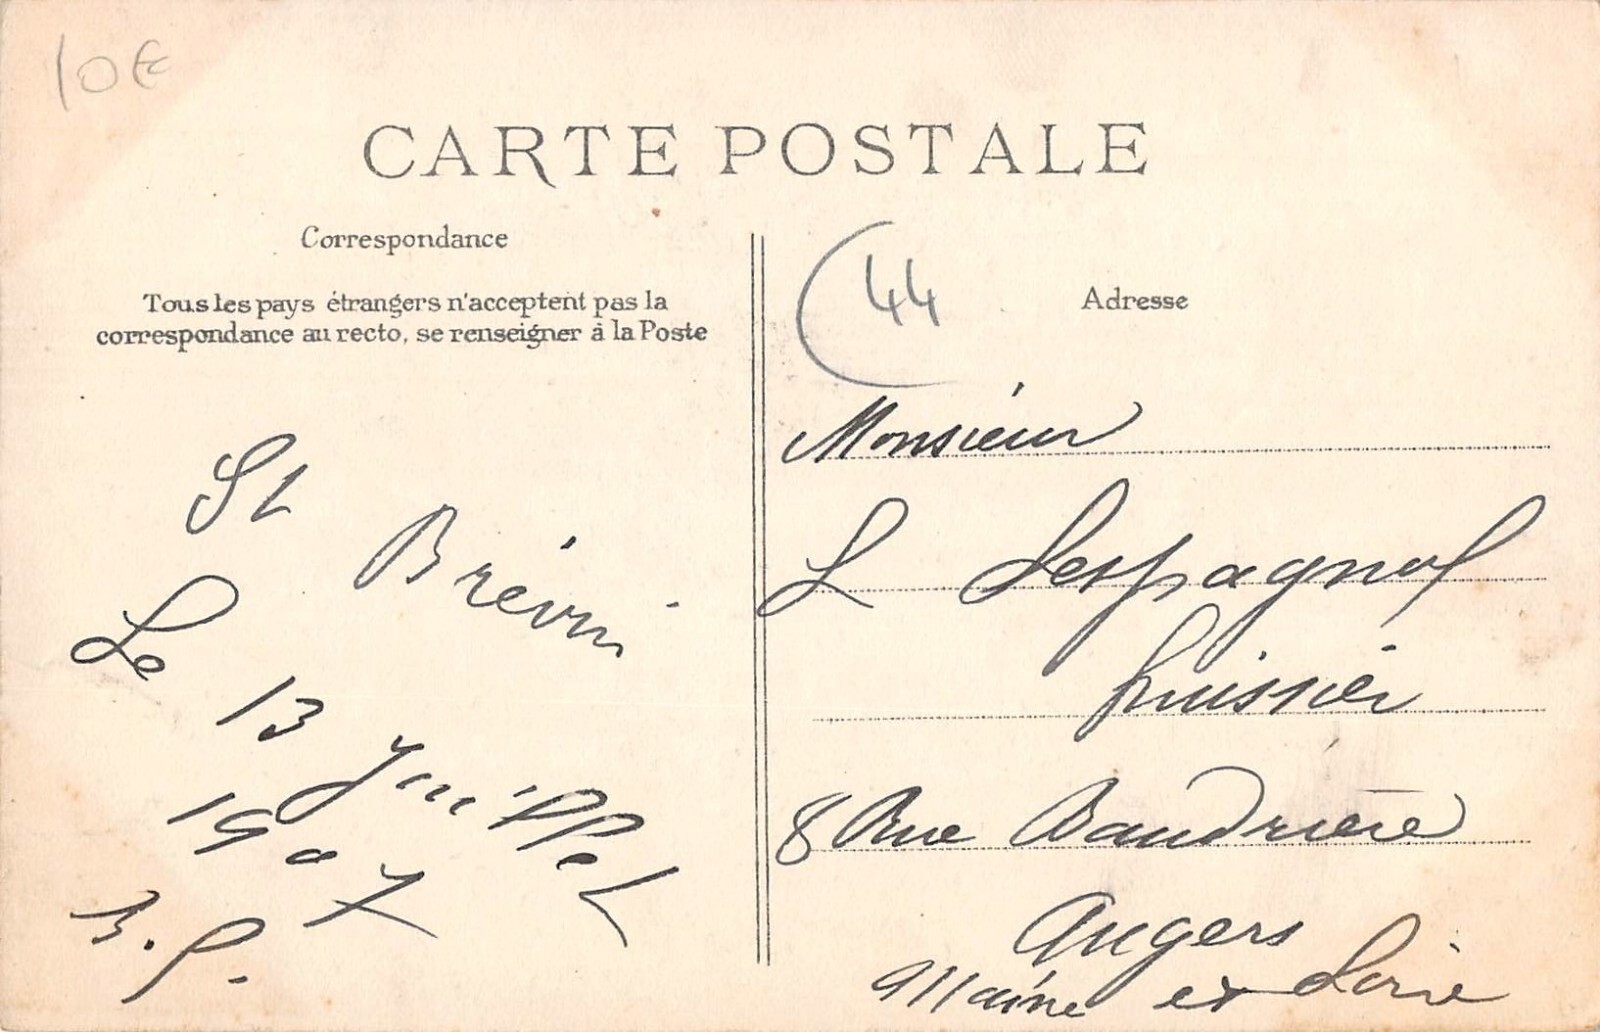 10€
CARTE POSTALE
Correspondance
Tous les pays étrangers n'acceptent pas la
correspondance au recto, se renseigner à la Poste
St Brévin
Le 13 Juillet
1907
44
Adresse
Monsieur
L Lespagnol
huissier
8 Rue Baudrière
Angers
Maine et Loire